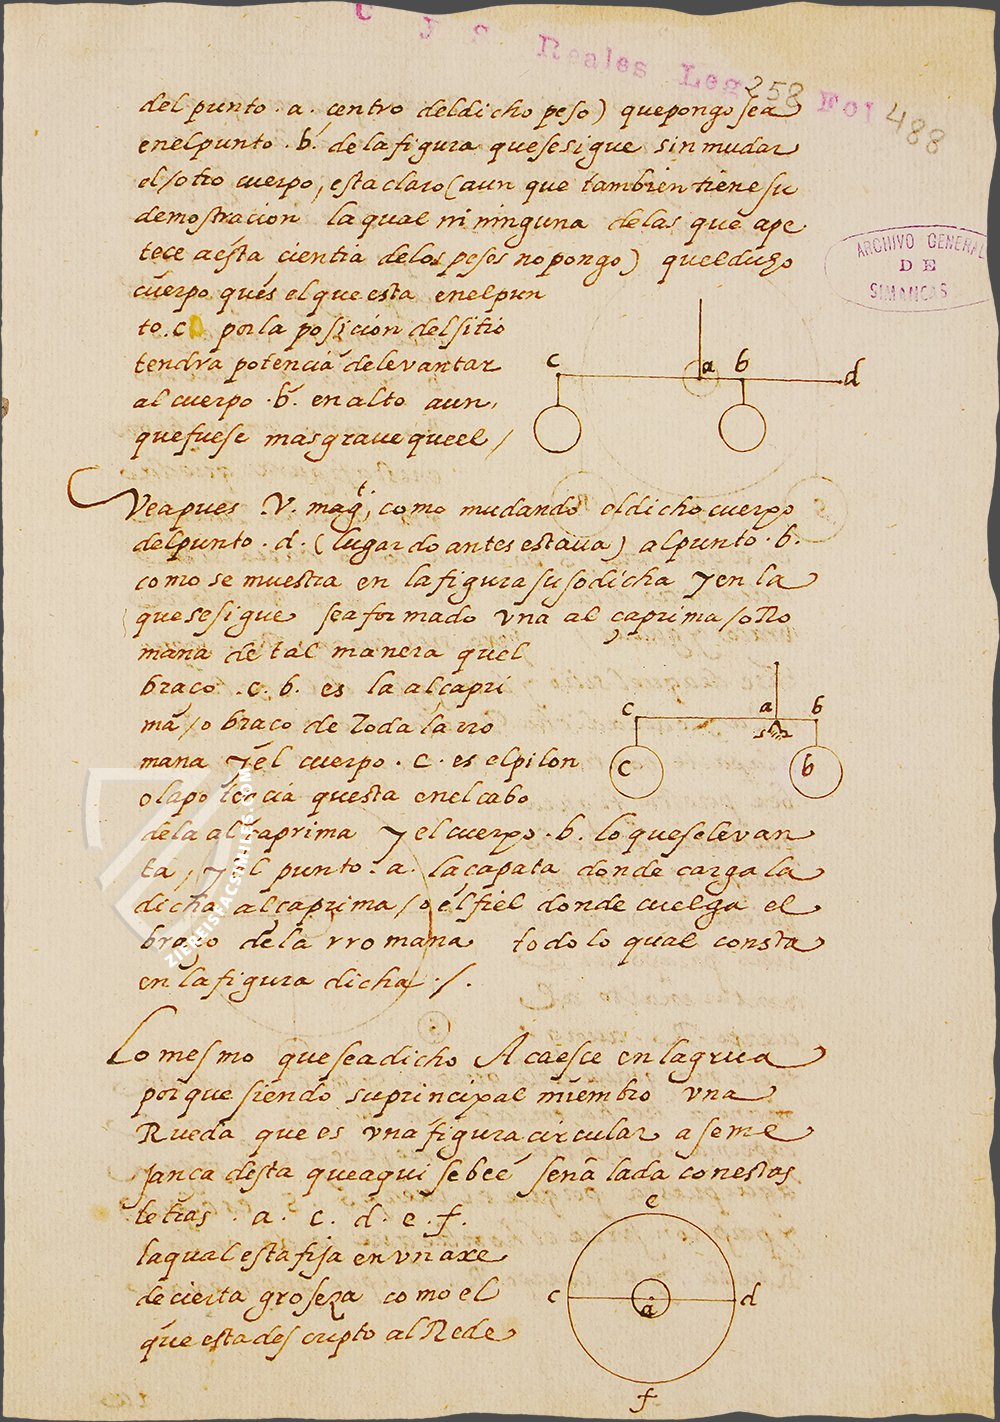 C J S Reales Leg 258 Fol 488
del punto . a . centro del dicho peso) que pongo sea
en el punto . b . de la figura que se sigue sin mudar
el /otro cuerpo, esta claro (aun que tambien tiene su
demostracion la qual ni ninguna de las que ape
tece a esta cientia de los pesos no pongo) quel dicho
cuerpo ques el que esta en el pun
to . c por la posicion del sitio
tendra potencia de levantar
al cuerpo . b . en alto aun,
que fuese mas grave que el /
ARCHIVO GENERAL
DE
SIMANCAS
c a b d
Vea pues .V. mag.t, como mudando el dicho cuerpo
del punto . d . (lugar do antes estaua) al punto . b .
como se muestra en la figura susodicha y en la
que se sigue sea formado vna alçaprima /o Ro
mana de tal manera quel
braço . c . b . es la alçapri
ma /o braço de toda la rro
mana y el cuerpo . c . es el pilon
o la potencia questa en el cabo
de la alçaprima y el cuerpo . b . lo que se levan
ta, y el punto . a . la çapata donde carga la
dicha alçaprima /o el fiel donde cuelga el
braço de la rromana todo lo qual consta
en la figura dicha . / .
c a b
c b
Lo mesmo que sea dicho Acaesce en la grua
porque siendo su principal miembro vna
Rueda que es vna figura circular a seme
jança desta que aqui se beé señalada con estas
letras . a . c . d . e . f .
la qual esta fija en vn axe
de cierta groseza como el
que esta descripto al Rede
e
c a d
f
ZIEREISFACSIMILES.COM